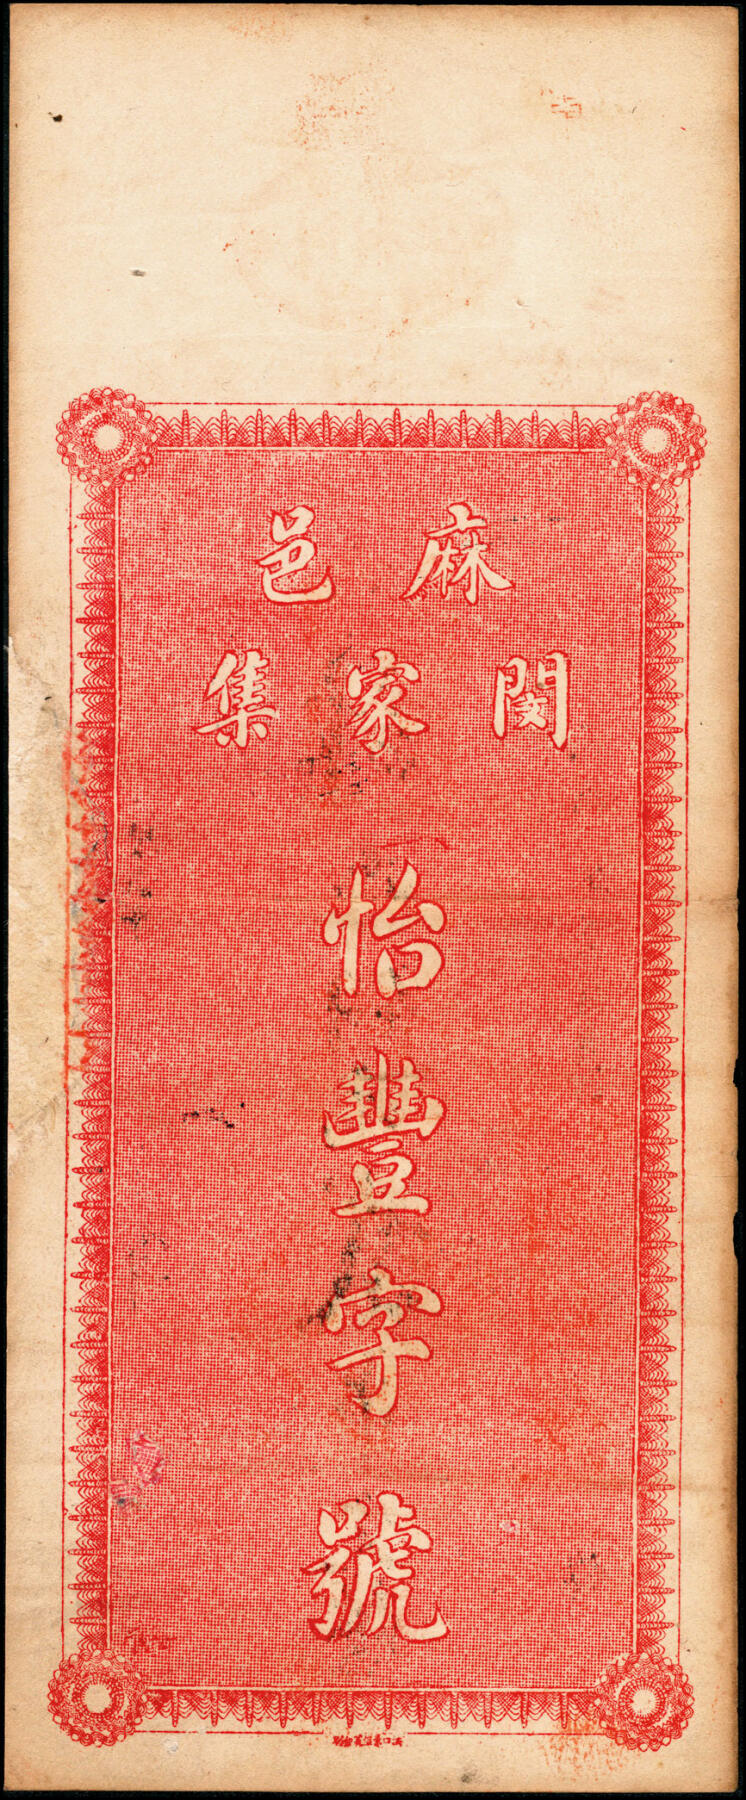 麻邑
閔家集
怡豐字號